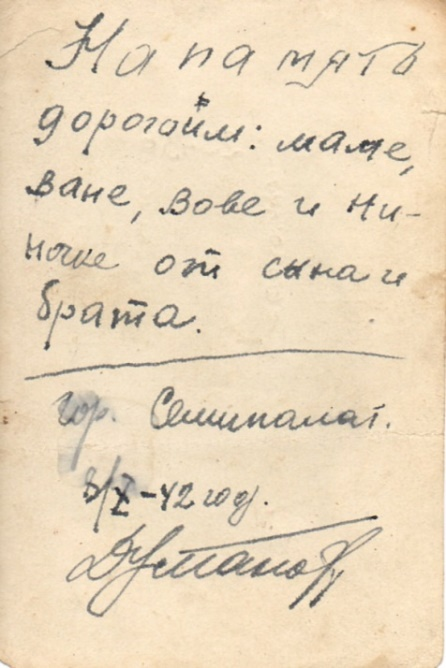 На память
дорогим: маме,
Ване, Вове и Ни-
ночке от сына и
брата.
гор. Семипалат.
3/X-42 год.